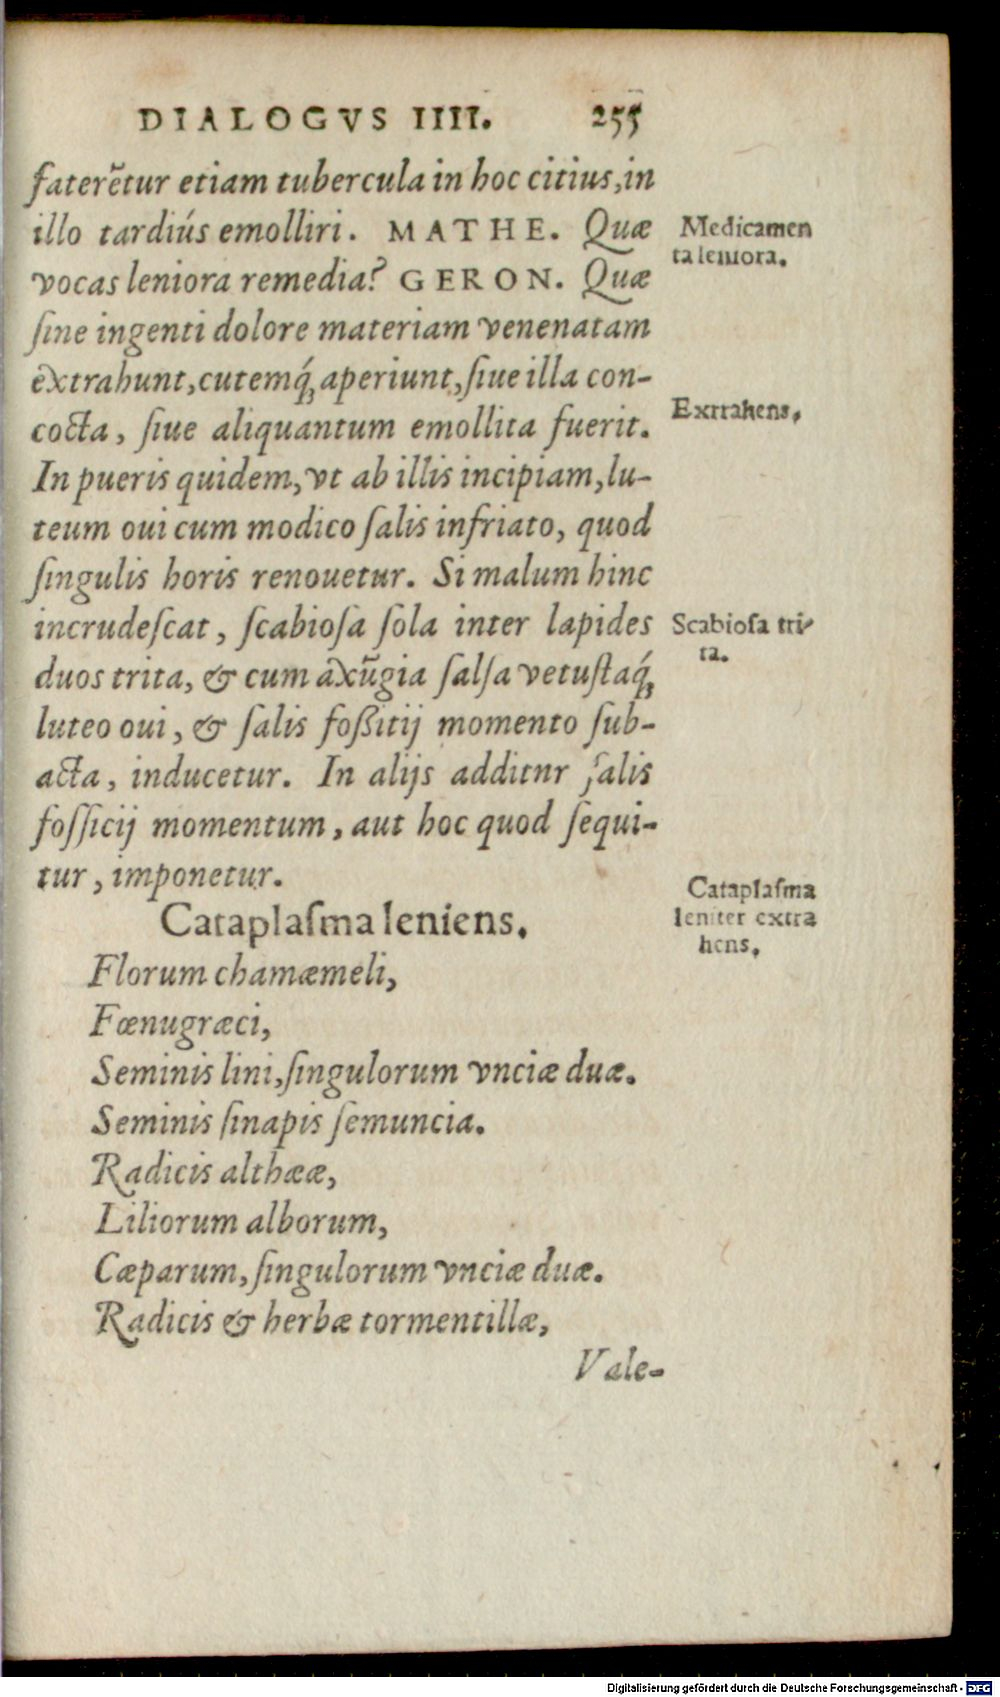 DIALOGVS IIII. 255
faterētur etiam tubercula in hoc citius, in
illo tardiús emolliri. MATHE. Quæ
vocas leniora remedia? GERON. Quæ
ſine ingenti dolore materiam venenatam
extrahunt, cutemq́ꝫ aperiunt, ſiue illa con-
cocta, ſiue aliquantum emollita fuerit.
In pueris quidem, vt ab illis incipiam, lu-
teum oui cum modico ſalis infriato, quod
ſingulis horis renouetur. Si malum hinc
incrudeſcat, ſcabioſa ſola inter lapides
duos trita, & cum axūgia ſalſa vetuſtaq́ꝫ
luteo oui, & ſalis foßitij momento ſub-
acta, inducetur. In alijs additnr ſalis
foſſicij momentum, aut hoc quod ſequi-
tur, imponetur.
Cataplaſma leniens.
Florum chamæmeli,
Fœnugræci,
Seminis lini, ſingulorum vnciæ duæ.
Seminis ſinapis ſemuncia.
Radicis althææ,
Liliorum alborum,
Cæparum, ſingulorum vnciæ duæ.
Radicis & herbæ tormentillæ,
Vale-
Medicamen
ta leniora.
Extrahens.
Scabioſa tri-
ta.
Cataplaſma
leniter extra
hens.
Digitalisierung gefördert durch die Deutsche Forschungsgemeinschaft - DFG